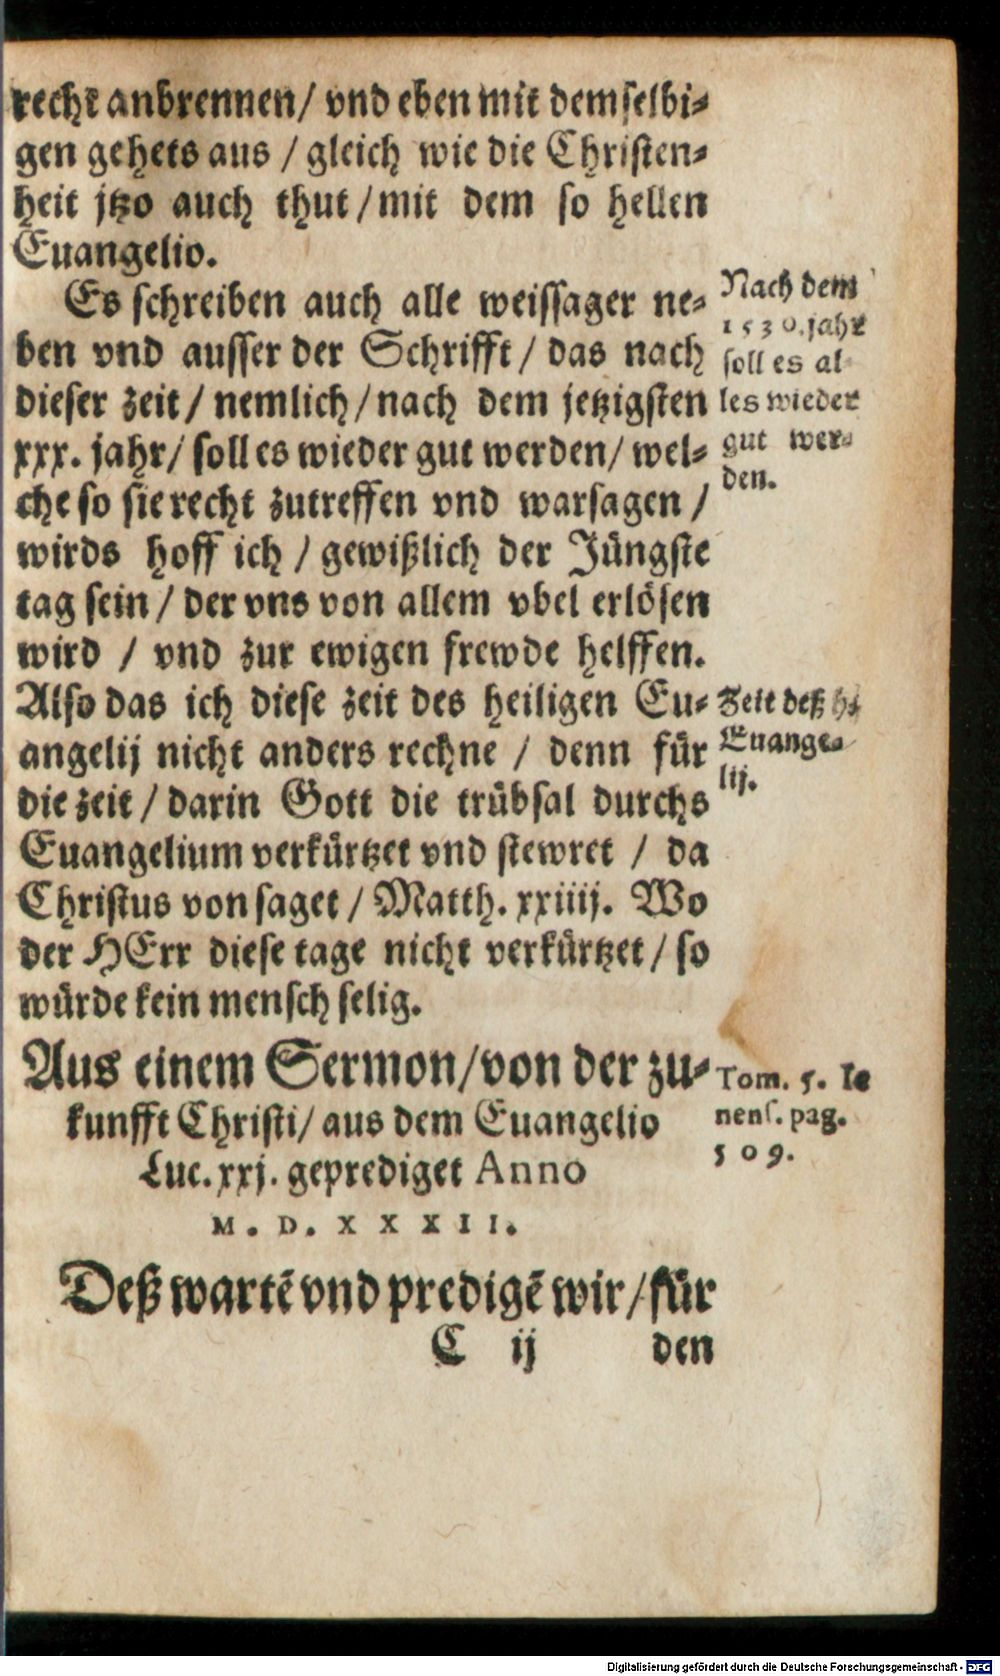 recht anbrennen/ vnd eben mit demselbi⸗
gen gehets aus / gleich wie die Christen⸗
heit jtzo auch thut / mit dem so hellen
Euangelio.
Es schreiben auch alle weissager ne⸗
ben vnd ausser der Schrifft / das nach
dieser zeit / nemlich / nach dem jetzigsten
xxx. jahr/ soll es wieder gut werden/ wel⸗
che so sie recht zutreffen vnd warsagen /
wirds hoff ich / gewißlich der Jüngste
tag sein / der vns von allem vbel erlösen
wird / vnd zur ewigen frewde helffen.
Also das ich diese zeit des heiligen Eu⸗
angelij nicht anders rechne / denn für
die zeit / darin Gott die trübsal durchs
Euangelium verkürtzet vnd stewret / da
Christus von saget / Matth. xxiiij. Wo
der HErr diese tage nicht verkürtzet / so
würde kein mensch selig.
Nach dem
1530. jahr
soll es al⸗
les wieder
gut wer⸗
den.
Zeit deß h.
Euange⸗
lij.
Aus einem Sermon/von der zu⸗
kunfft Christi/ aus dem Euangelio
Luc. xxj. geprediget Anno
M. D. XXXII.
Tom. 5. Ie
nens. pag.
509.
Deß wartē vnd predigē wir/für
C ij den
Digitalisierung gefördert durch die Deutsche Forschungsgemeinschaft - DFG